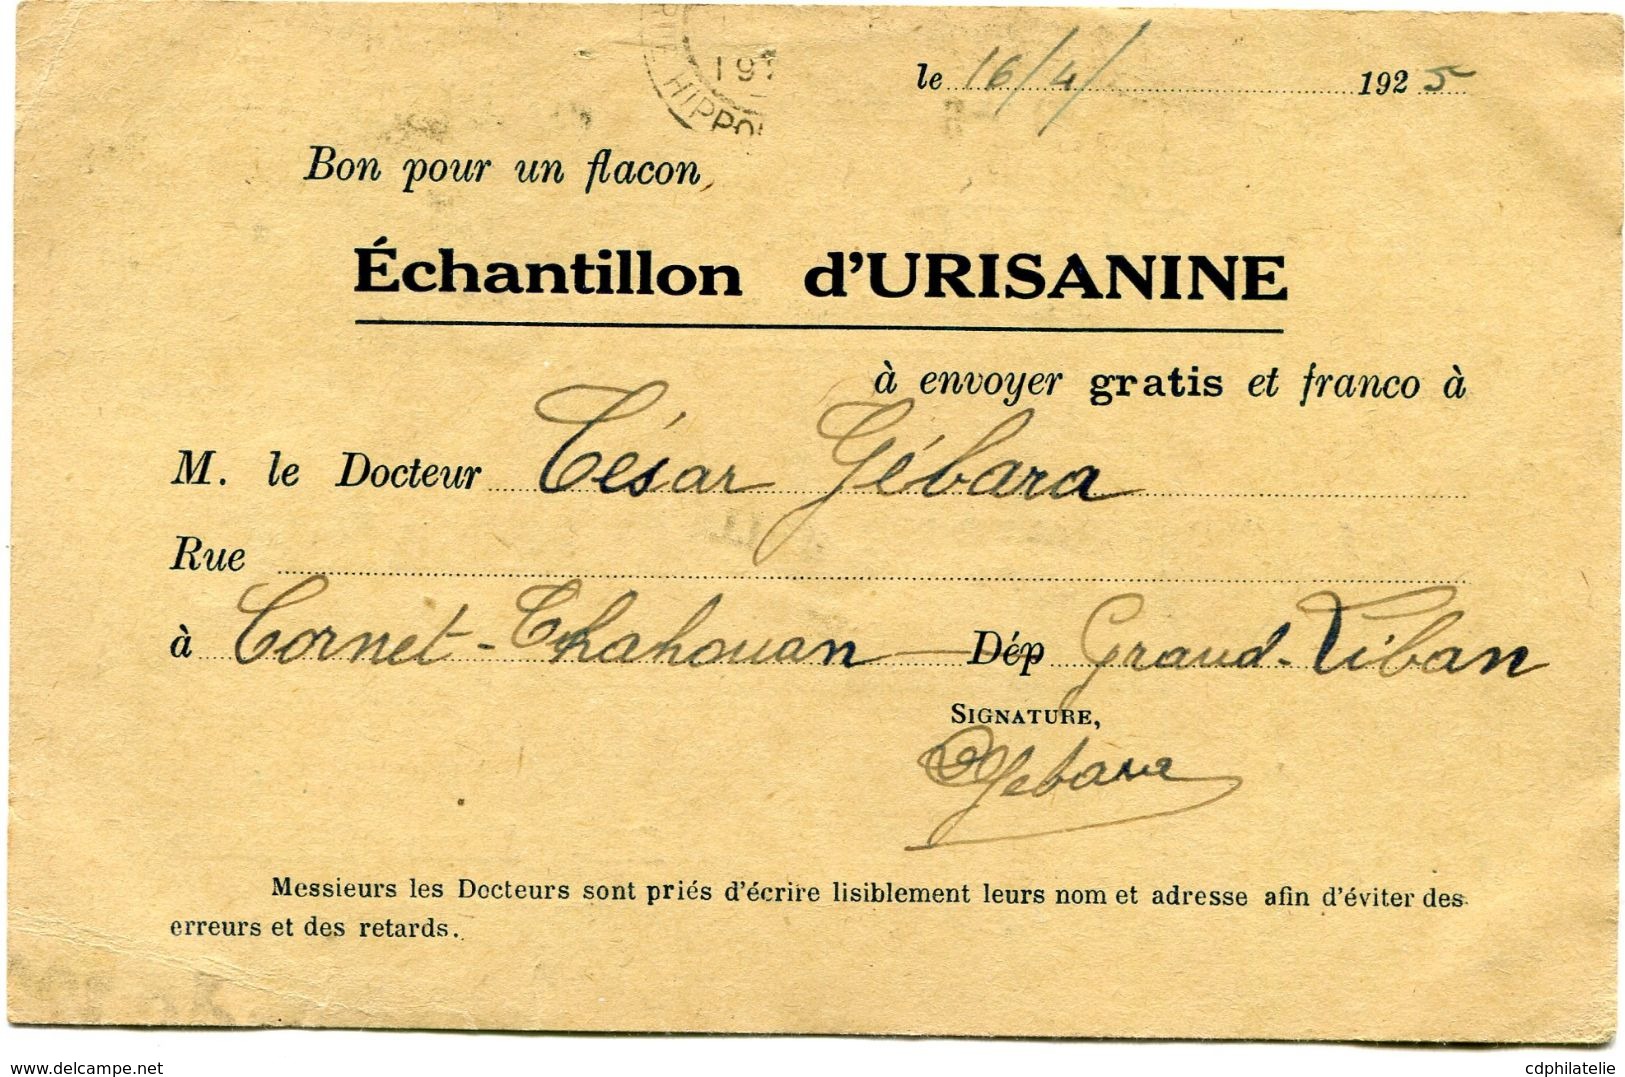 HIPPO
le 16/4/ 1925
Bon pour un flacon,
Échantillon d'URISANINE
à envoyer gratis et franco à
M. le Docteur César Gébara
Rue
à Cornet-Chahouan Dép Grand-Liban
SIGNATURE,
Gebara
Messieurs les Docteurs sont priés d'écrire lisiblement leurs nom et adresse afin d'éviter des
erreurs et des retards.
www.delcampe.net
cdphilatelie